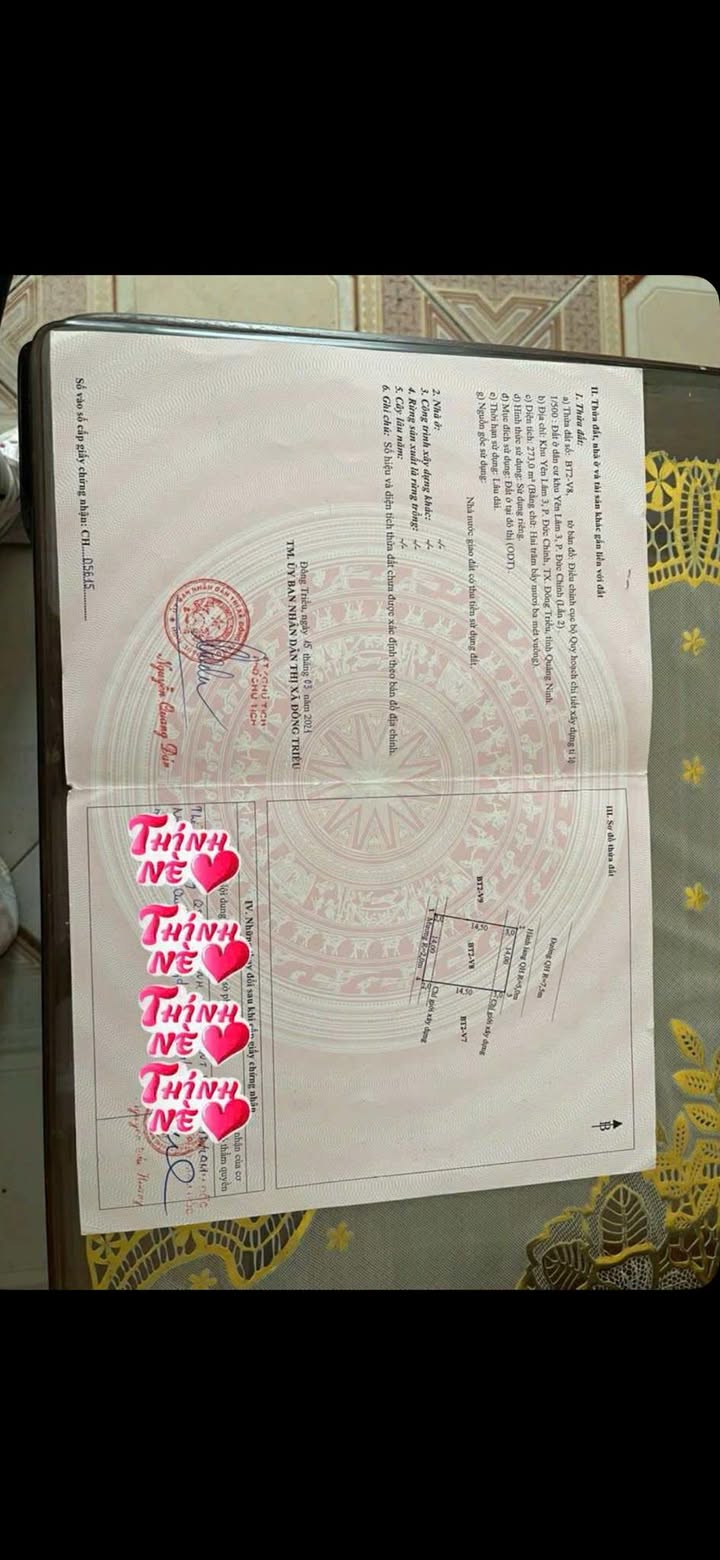 II. Thửa đất, nhà ở và tài sản khác gắn liền với đất
1. Thửa đất:
a) Thửa đất số: BT2-V8, tờ bản đồ: Điều chỉnh cục bộ Quy hoạch chi tiết xây dựng tỉ lệ
1/500 : Đất ở dân cư khu Yên Lâm 3, P. Đức Chính (Lần 2)
b) Địa chỉ: Khu Yên Lâm 3, P. Đức Chính, TX. Đông Triều, tỉnh Quảng Ninh
c) Diện tích: 273,0 m² (Bằng chữ: Hai trăm bảy mươi ba mét vuông).
d) Hình thức sử dụng: Sử dụng riêng.
đ) Mục đích sử dụng: Đất ở tại đô thị (ODT).
e) Thời hạn sử dụng: Lâu dài.
g) Nguồn gốc sử dụng: Nhà nước giao đất có thu tiền sử dụng đất.
2. Nhà ở: -/-
3. Công trình xây dựng khác: -/-
4. Rừng sản xuất là rừng trồng: -/-
5. Cây lâu năm: -/-
6. Ghi chú: Số hiệu và diện tích thửa đất chưa được xác định theo bản đồ địa chính.
Đông Triều, ngày 15 tháng 03 năm 2021
TM. ỦY BAN NHÂN DÂN THỊ XÃ ĐÔNG TRIỀU
KT. CHỦ TỊCH
PHÓ CHỦ TỊCH
Nguyễn Quang
Số vào sổ cấp giấy chứng nhận: CH....05615
III. Sơ đồ thửa đất
B
Đường QH R=7,5m
Hành lang QH R=5,0m
2
3,0
14,00
3
Chỉ giới xây dựng
BT2-V9
14,50
BT2-V8
14,50
BT2-V7
1
14,00
4
Chỉ giới xây dựng
Mương R=2,0m
IV. Những thay đổi sau khi cấp giấy chứng nhận
nhận của cơ
thẩm quyền
THÍNH
NÈ
THÍNH
NÈ
THÍNH
NÈ
THÍNH
NÈ